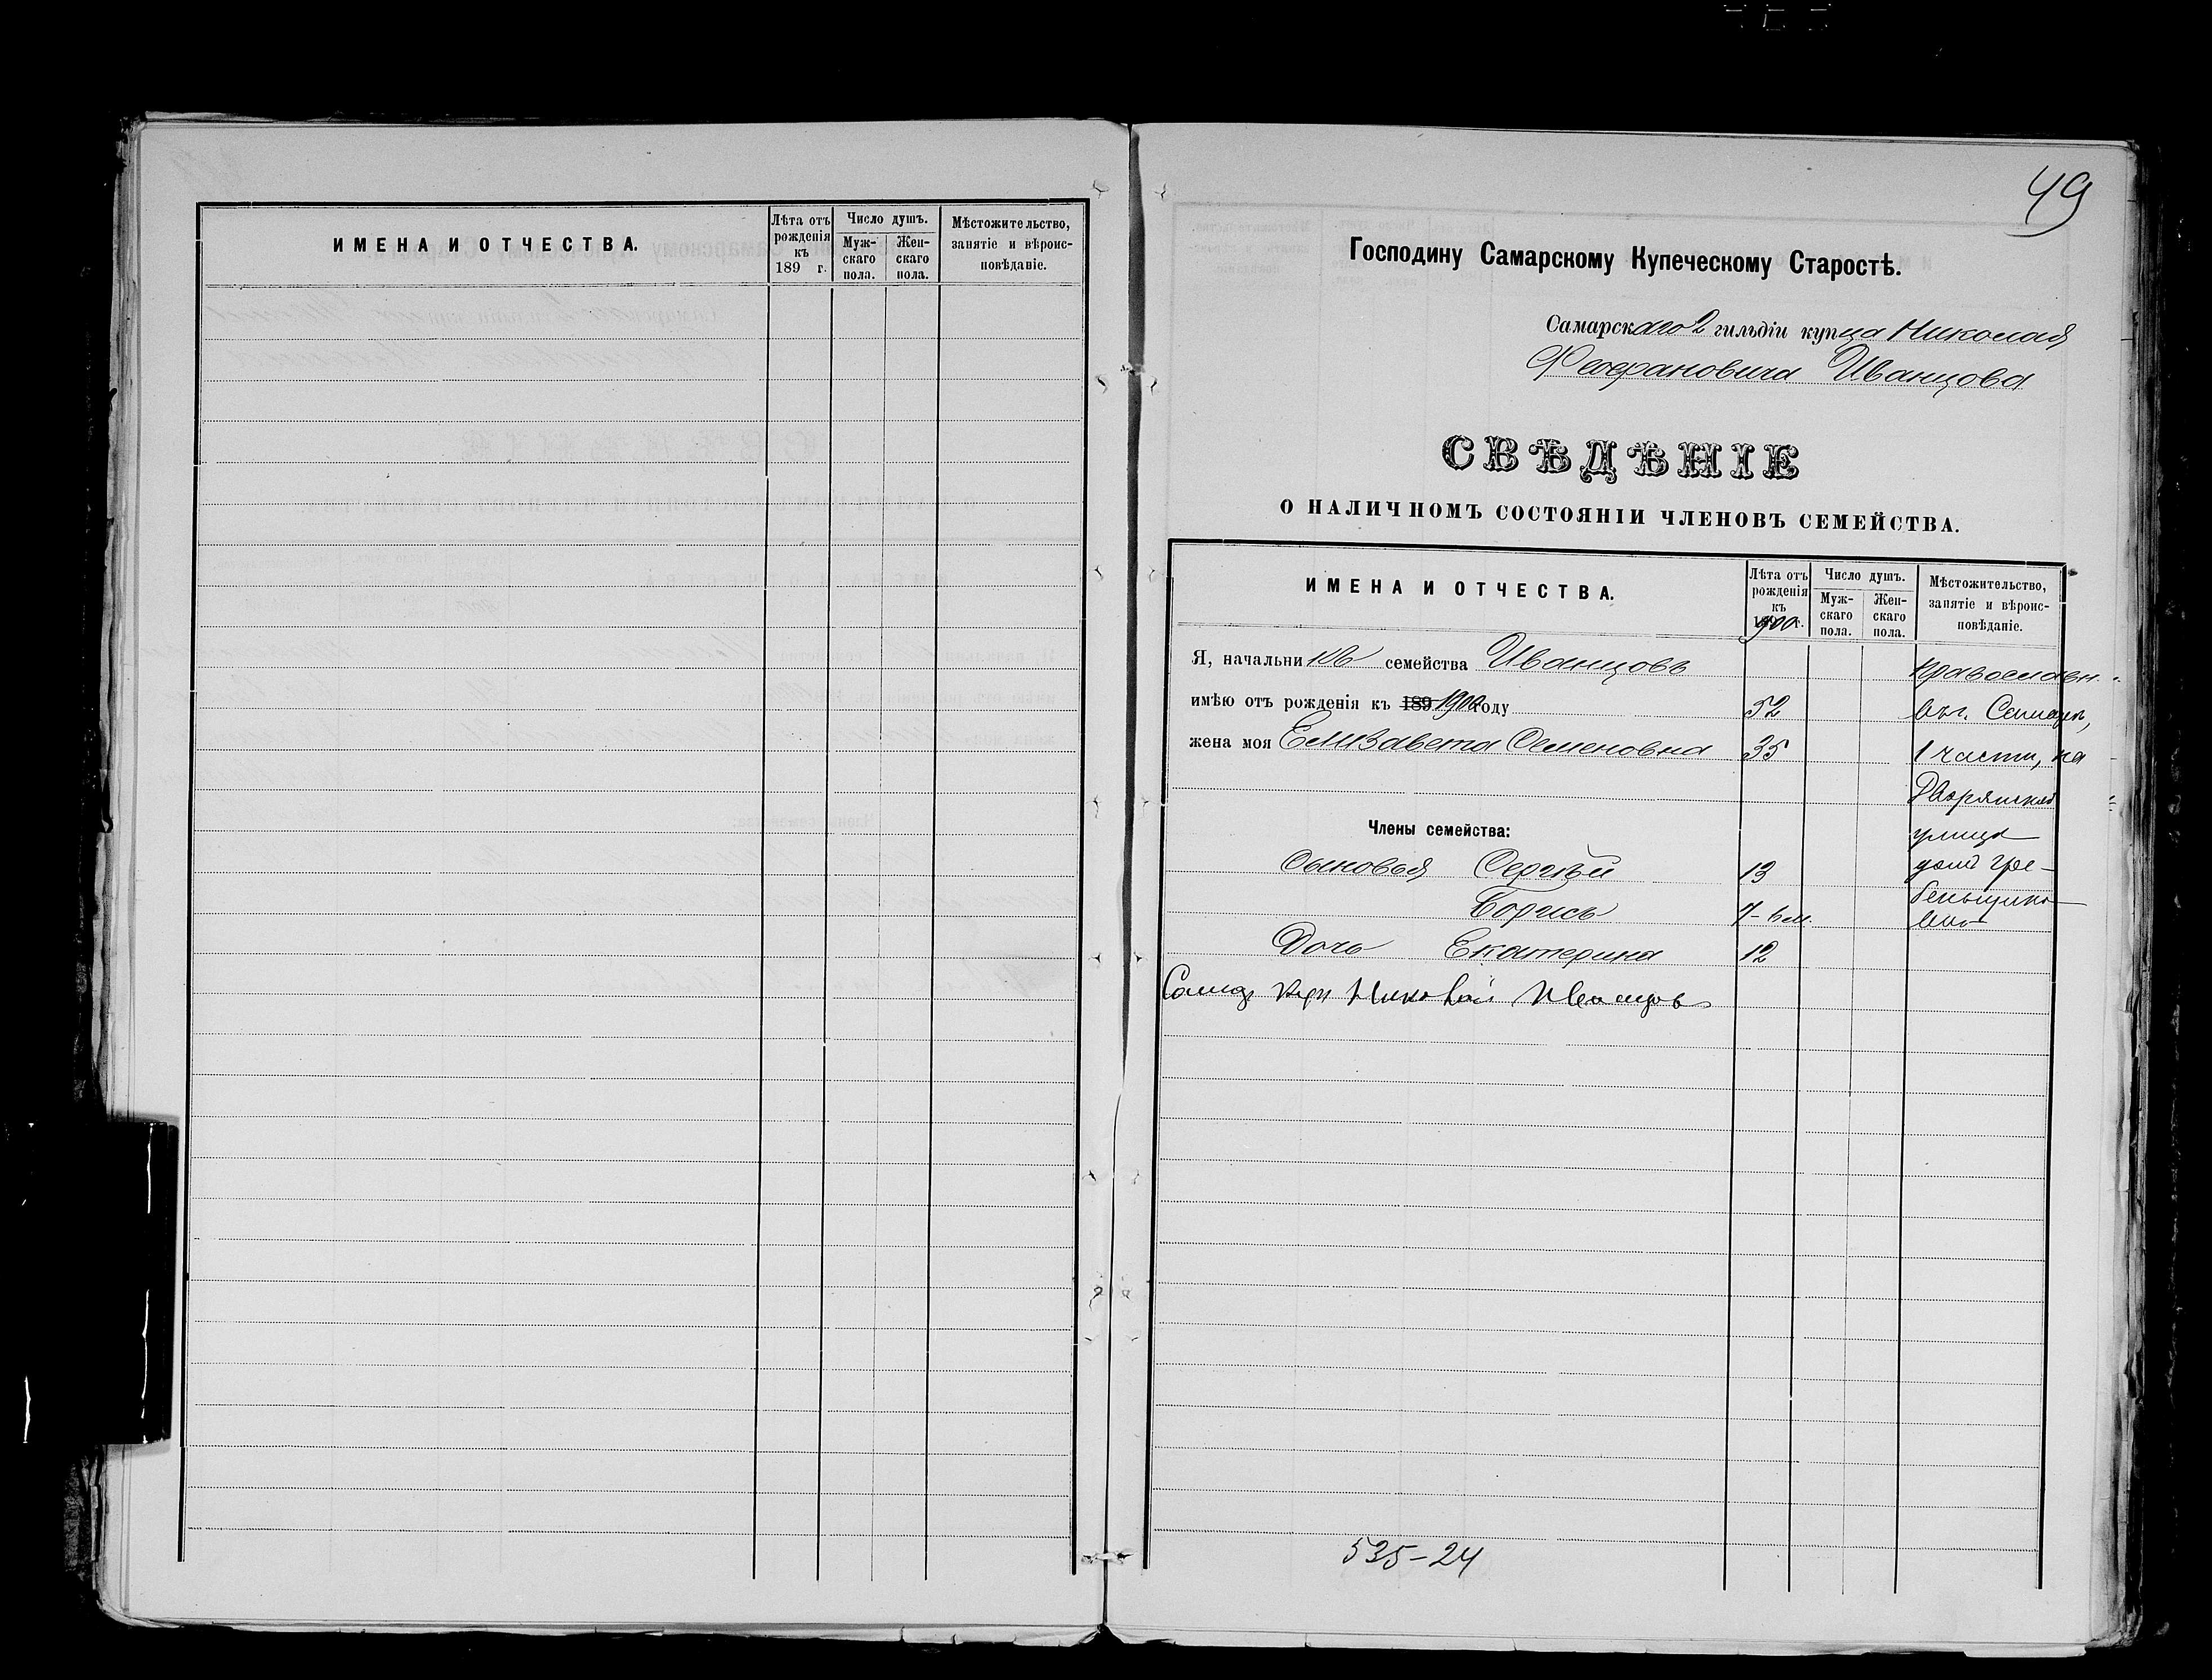 ИМЕНА И ОТЧЕСТВА.
Лѣта отъ рожденія къ 189 г.
Число душъ.
Муж-скаго пола.
Жен-скаго пола.
Мѣстожительство, занятіе и вѣроис-повѣданіе.
49
Господину Самарскому Купеческому Старостѣ.
Самарскаго 2 гильдіи купца Николая
Феофановича Иванцова
СВѢДѢНІЕ
О НАЛИЧНОМЪ СОСТОЯНІИ ЧЛЕНОВЪ СЕМЕЙСТВА.
ИМЕНА И ОТЧЕСТВА.
Лѣта отъ рожденія къ 1900 г.
Число душъ.
Муж-скаго пола.
Жен-скаго пола.
Мѣстожительство, занятіе и вѣроис-повѣданіе.
Я, начальникъ семейства Иванцовъ православн.
имѣю отъ рожденія къ 189 1900 году 52 въ г. Самарѣ,
жена моя Елизавета Семеновна 35 1 части, на
Дворянской
Члены семейства: улицѣ
Сыновья Сергѣй 13 домъ Гре-
Борисъ 7-6 м. бенщико-
Дочь Екатерина 12
Самар куп Николай Иванцовъ
535-24